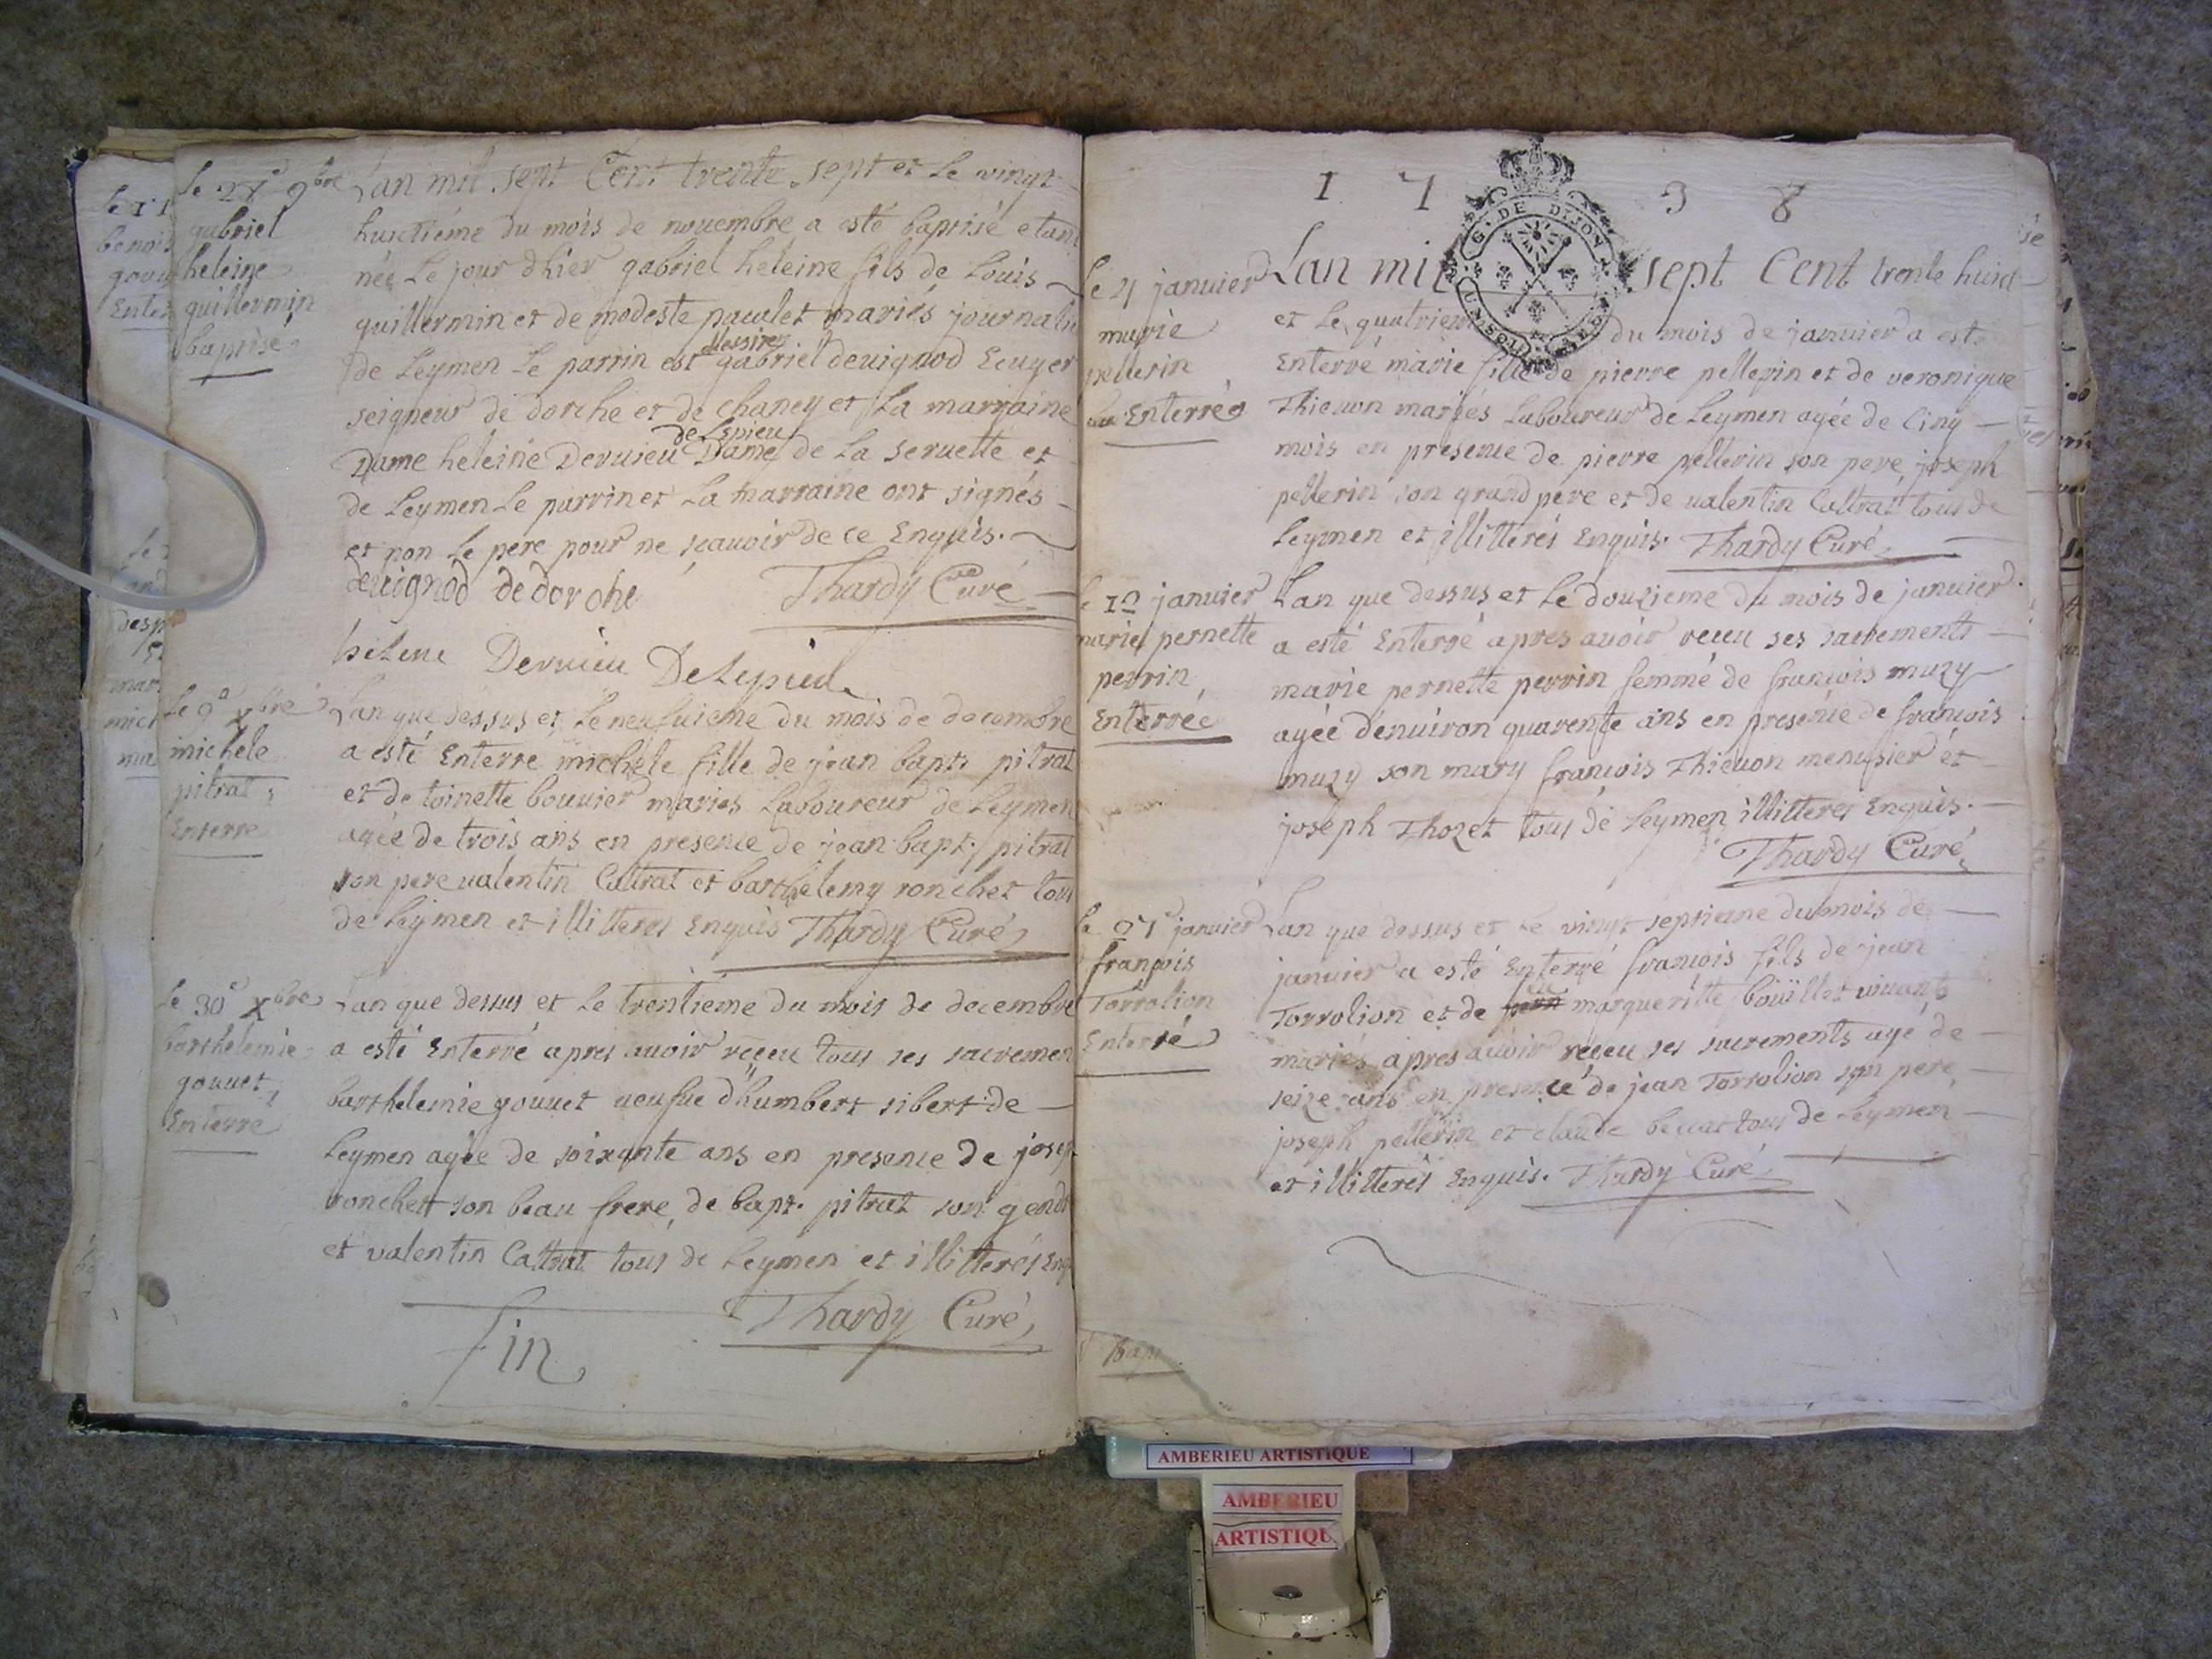 le 28e 9bre
gabriel
heleine
guillermin
baptisé
Lan mil sept Cent trente sept et Le vingt
huictiéme du mois de novembre a esté baptisé etant
née Le jour dhier gabriel heleine fils de Louis
guillermin et de modeste paculet mariés journalie
de Leymen Le parrin est messire gabriel deuignod Ecuyer
seigneur de dorche et de chaney et La marraine
Dame heleine Deruieu de Lepieu Dame de La seruette et
de Leymen Le parrin et La marraine ont signés
et non Le pere pour ne scauoir de ce Enquis.
deuignod de dorche Thardy Curé
helene Deruieu Delepieu
le 9e xbre
michele
pitrat
Enterre
Lan que dessus et Le neufuieme du mois de decembre
a esté Enterre michele fille de jean bapt. pitrat
et de toinette bouuier maries Laboureur de Leymen
agée de trois ans en presence de jean bapt. pitrat
son pere ualentin Cattrat et barthelemy ronchet tous
de Leymen et illitteres Enquis Thardy Curé
le 30e xbre
barthelemie
gouuet
Enterre
Lan que dessus et Le trentieme du mois de decembre
a esté Enterré apres auoir reçeu tous ses sacremen
barthelemie gouuet ueufue d'humbert sibert de
Leymen agée de soixante ans en presence de josep
ronchett son beau frere, de bapt. pitrat son gend
et valentin Cattrat tous de Leymen et illitterés Enq
fin Thardy Curé
1738
G. DE DIJON
le 4 januier
marie
pellerin
Enterrée
Lan mil sept Cent trente huict
et Le quatrieme du mois de januier a esté
Enterré marie fille de pierre pellerin et de veronique
Thieuon mariés Laboureur de Leymen agée de Cinq
mois en presence de pierre pellerin son pere, joseph
pellerin son grand pere et de ualentin Cattrat tous de
Leymen et illitterés Enquis. Thardy Curé
le 12 januier
marie pernette
perrin
Enterrée
Lan que dessus et Le douzieme du mois de januier
a esté Enterré apres auoir receu ses sacrements
marie pernette perrin femme de francois muzy
agée denuiron quarente ans en presence de francois
muzy son mary francois Thieuon menusier et
joseph Thozet tous de Leymen illitteres Enquis.
Thardy Curé
le 27 januier
françois
Torrolion
Enterré
Lan que dessus et Le vingt septieme du mois de
januier a esté Enterré francois fils de jean
Torrolion et de margueritte boüillet viuants
mariés apres auoir reçeu ses sacrements agé de
seize ans en presence de jean Torrolion son pere,
joseph pellerin et claude beccat tous de Leymen
et illitterés Enquis. Thardy Curé
AMBERIEU ARTISTIQUE
AMBERIEU
ARTISTIQU